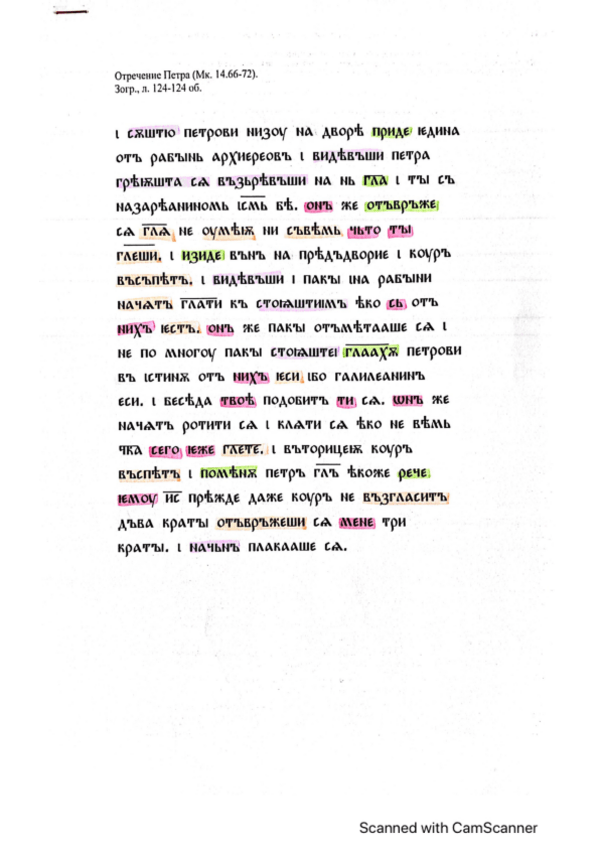 Отречение Петра (Мк. 14.66-72).
Зогр., л. 124-124 об.
ı сѫштю петрови низоу на дворѣ приде ıедина
отъ рабынь архиереовъ ı видѣвъши петра
грѣıѫшта сѧ възьрѣвъши на нь гл҃а ı ты съ
назарѣаниномь ıс҃мь бѣ. онъ же отъвръже
сѧ гл҃ѧ не оумѣıѫ ни съвѣмь чьто ты
гл҃еши. ı изиде вънъ на прѣдъдворие ı коуръ
въсъпѣтъ. ı видѣвъши ı пакы ıна рабыни
начѧтъ гл҃ати къ стоıѧштиıмъ ѣко сь отъ
нихъ ıестъ. онъ же пакы отъмѣтааше сѧ ı
не по многоу пакы стоıѧштеı гл҃аахѫ петрови
въ ıстинѫ отъ нихъ ıеси ıбо галилеанинъ
еси. ı бесѣда твоѣ подобитъ ти сѧ. ѡнъ же
начѧтъ ротити сѧ ı клѧти сѧ ѣко не вѣмь
чка сего ıеже гл҃ете. ı въторицеıѫ коуръ
въспѣтъ ı помѣнѫ петръ гл҃ъ ѣкоже рече
ıемоу и҃с прѣжде даже коуръ не възгласитъ
дъва краты отъвръжеши сѧ мене три
краты. ı начьнъ плакааше сѧ.
Scanned with CamScanner